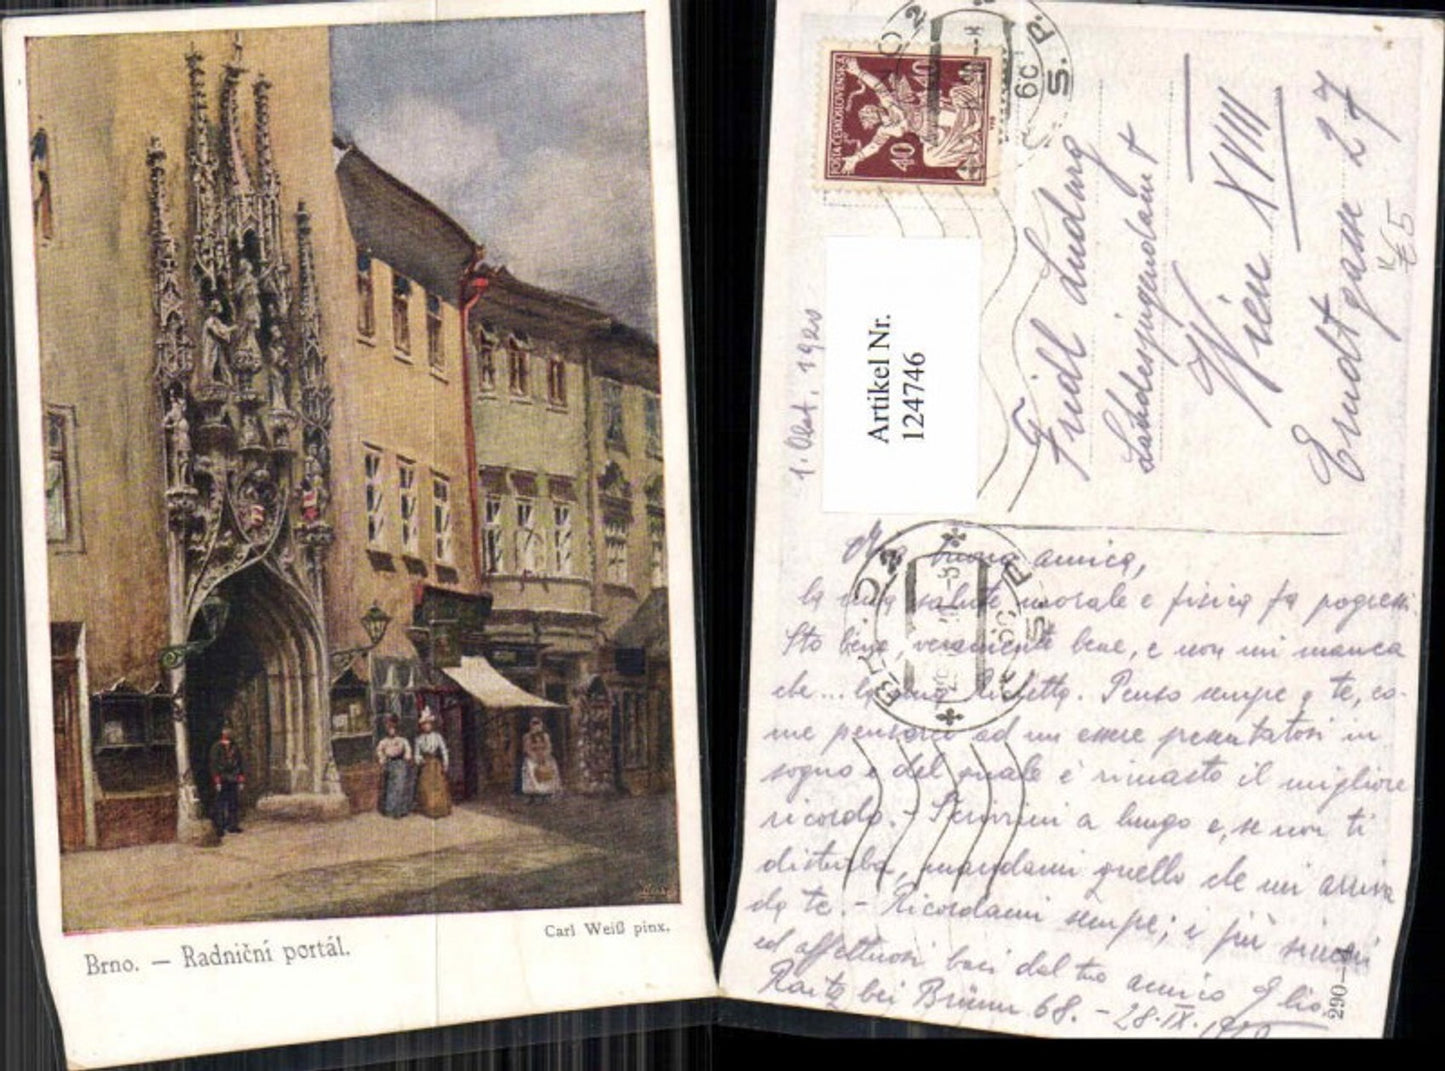 Brno. — Radniční portál.
Carl Weiß pinx.
POŠTA ČESKOSLOVENSKÁ
40 40
BRNO 2
S. P.
6c
Artikel Nr.
124746
1. Okt. 1920
Fridl Ludwig
Landesjugendamt
Wien XVIII
Erndtgasse 27
K 5
Mia buona amica,
la mia salute morale e fisica fa progressi.
Sto bene, veramente bene, e non mi manca
che... la Penso sempre a te, co-
me pensarei ad un essere presentatosi in
sogno e del quale è rimasto il migliore
ricordo. - Scrivimi a lungo e, se non ti
disturba, mandami quello che mi arriva
da te. - Ricordami sempre; i più sinceri
ed affettuosi baci dal tuo amico
Raitz bei Brünn 68. - 28.IX.
290